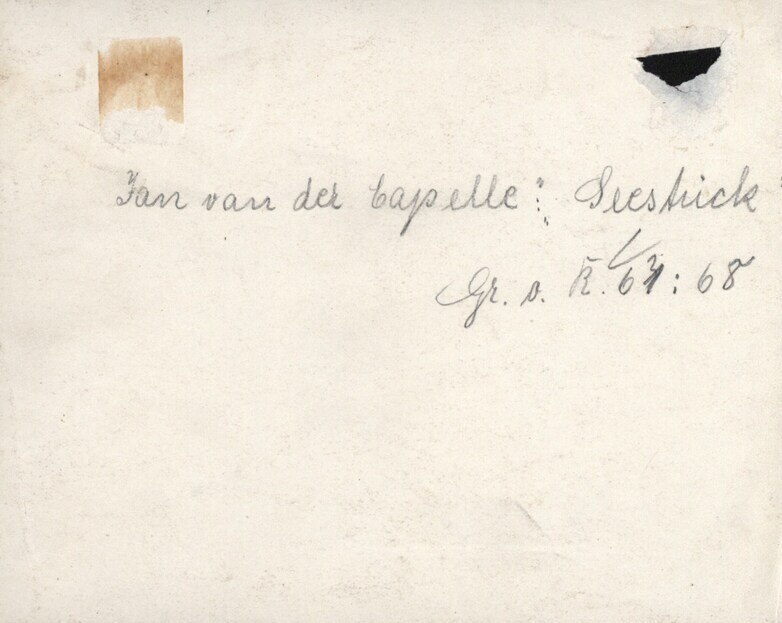 "Jan van der Capelle": Seestück"
Gr. o. R. 61: 68